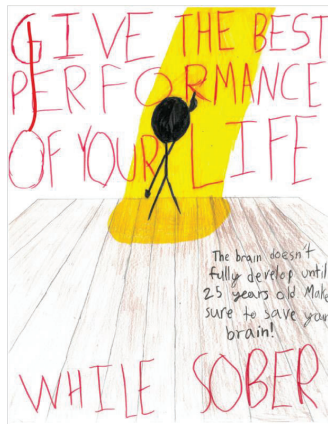 GIVE THE BEST
PERFORMANCE
OF YOUR LIFE
The brain doesn't
fully develop until
25 years old Make
sure to save your
brain!
WHILE SOBER